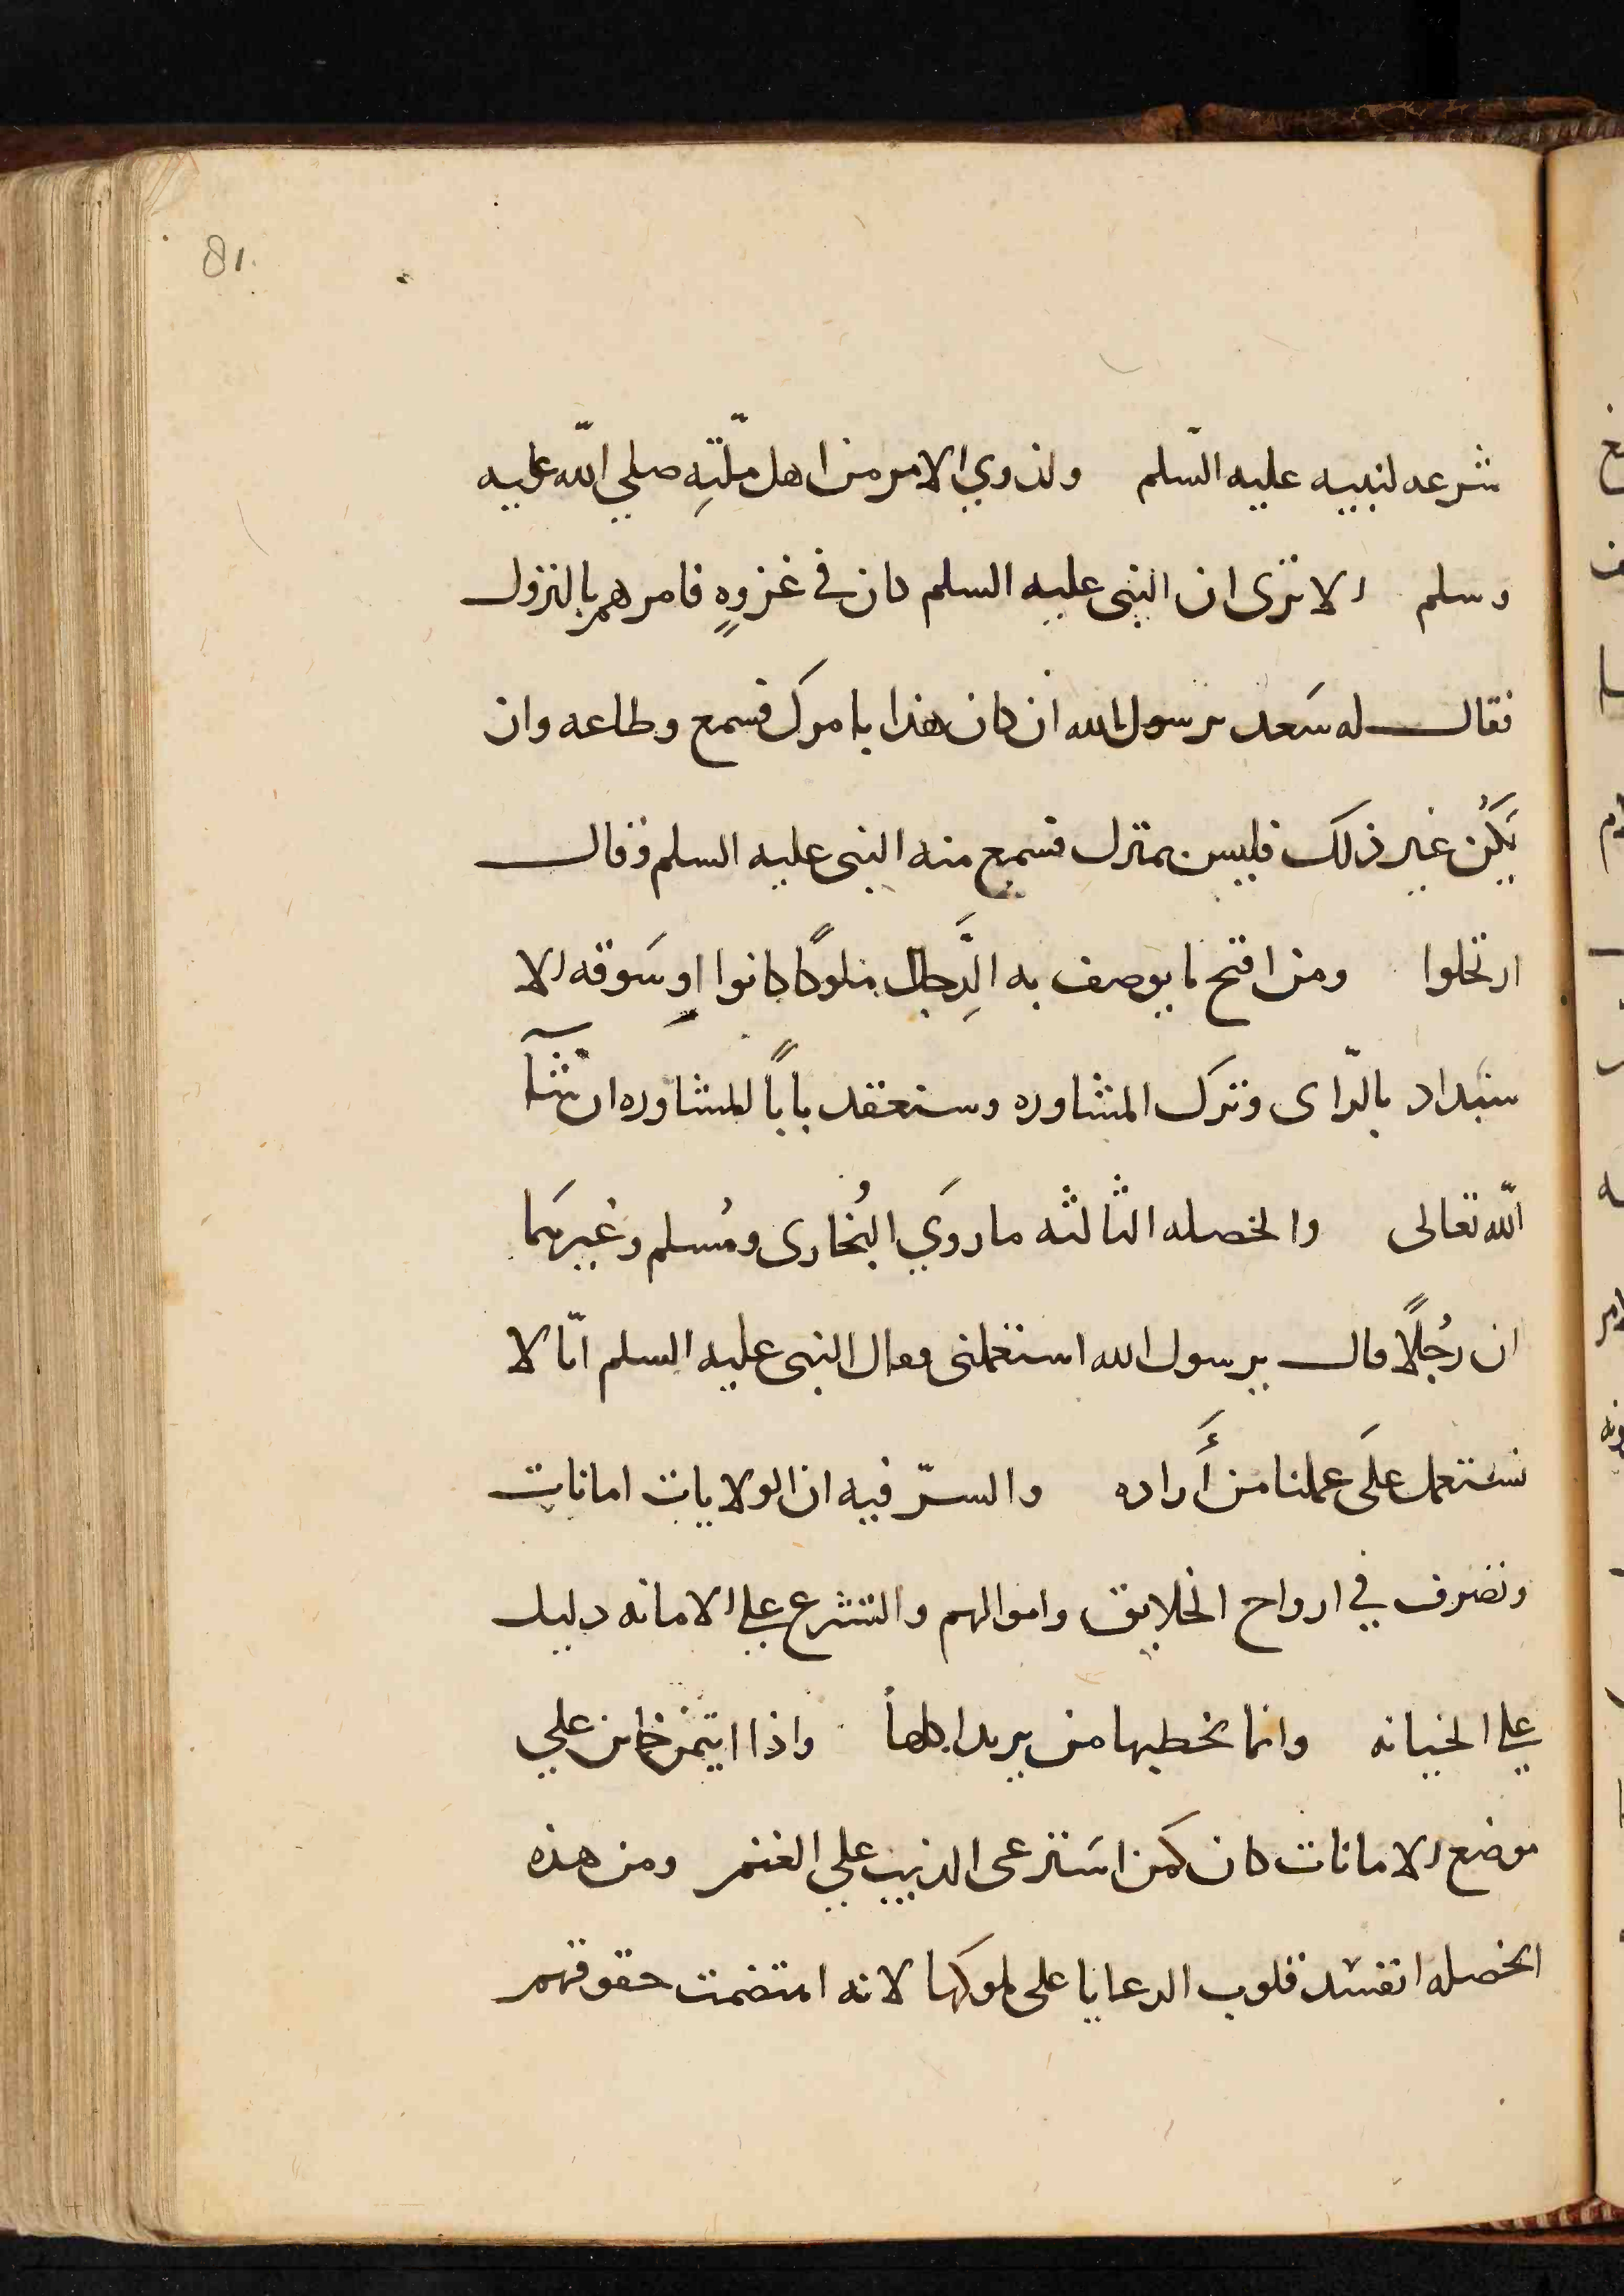 81
شرعه لنبيه عليه السّلم ولذوي الامر من اهل ملّتِه صلي اللّه عليه
وسلم الا ترى ان النبى عليه السلم كان في غزوةٍ فامرهم بالنزول
فقال له سَعد يرسول الله ان كان هذا بامرك فسمع وطاعه وان
يَكُن غير ذلك فليس بمنزل فسمع منه النبى عليه السلم وقال
ارتحلوا ومن اقبح ما يوصف به الرِّجال ملوكًا كانوا او سَوقه الا
ستبداد بالرّاى وترك المشاوره وسنعقد بابًا للمشاوره ان شآ
اللّه تعالى والخصله الثالثه ما روَي البُخارى ومُسلم وغيرهَما
ان رُجلًا قال يرسول الله استعملنى فقال النبى عليه السلم انّا لا
نستعمل علَى عملنا من أَراده والسرّ فيه ان الولايات امانات
وتصرف في ارواح الخلايق واموالهم والتشرع علي الامانه دليل
علي الخيانه وانما يخطبها من يريد اكلها واذا ايتمن خاين علي
موضع الامانات كان كمن استرعى الذيب علي الغنم ومن هذه
الخصله اتفسد قلوب الرعايا على ملوكها لانه اهتضمت حقوقهم